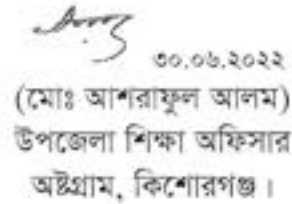 ৩০.০৬.২০২২
(মোঃ আশরাফুল আলম)
উপজেলা শিক্ষা অফিসার
অষ্টগ্রাম, কিশোরগঞ্জ।